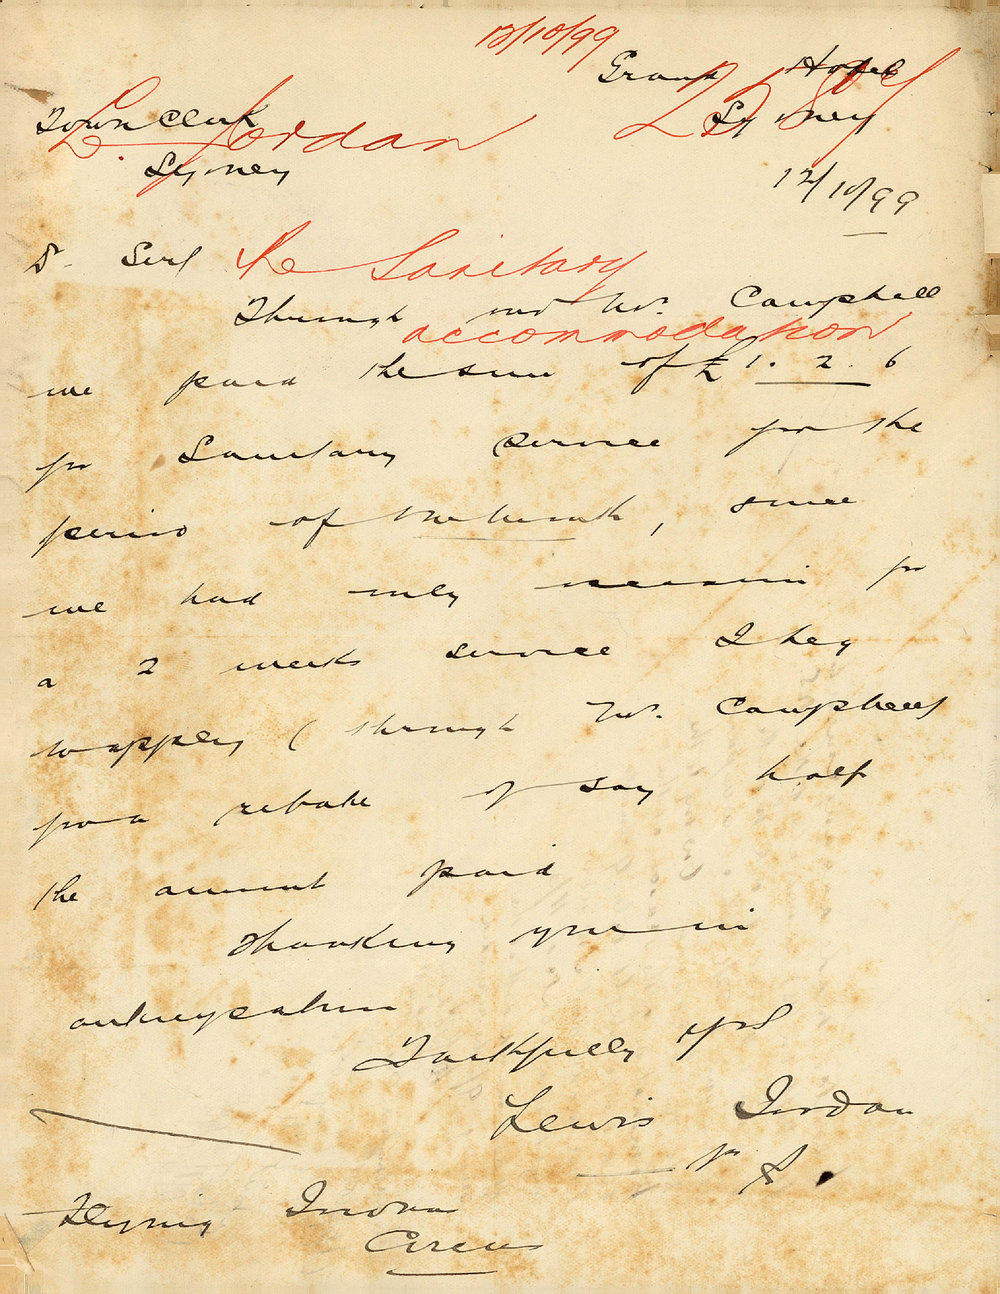 13/10/99
Grand Hotel
Town Clerk
Sydney
L. Jordan
Sydney
12/10/99
Dr Sir/
Re Sanitary
Through Mr. Campbell
accommodation
we paid the sum of £1.2.6
for Sanitary Service for the
period of the month, since
we had only occasion for
a 2 weeks service I beg
to apply (through Mr. Campbell)
for a rebate of say half
the amount paid
Thanking you in
anticipation
Faithfully yrs
Lewis Jordan
Flying Jordan
Circus